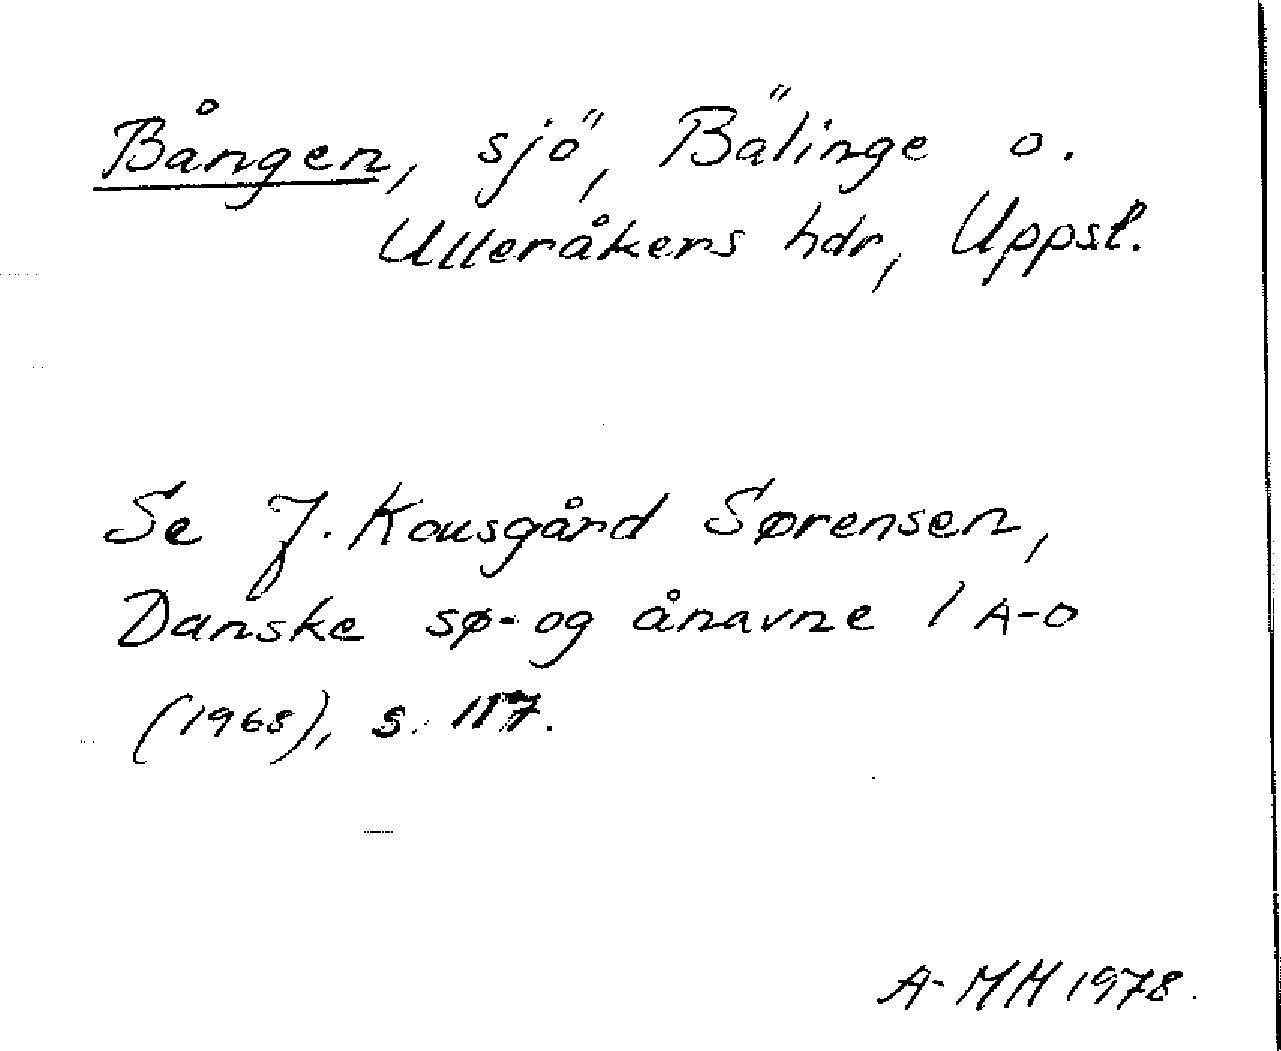 Bången, sjö, Bälinge o.
Ulleråkers hdr, Uppsl.
Se J. Kousgård Sørensen,
Danske sø- og ånavne 1 A-O
(1968), s. 117.
A-MH 1978.